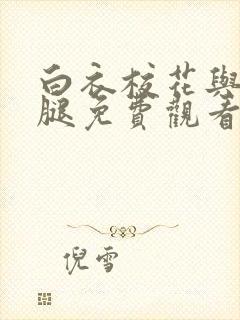 白衣校花與
腿免費觀看
倪雪